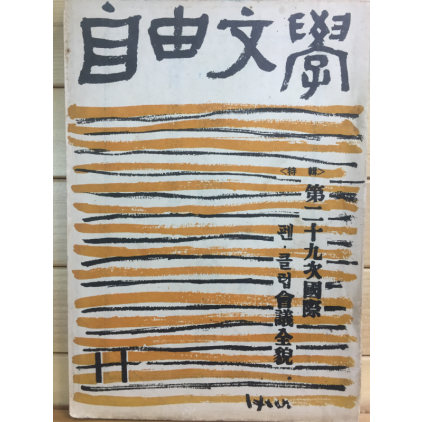 自由文學
<特輯>
第二十九次國際
펜·클럽會議全貌